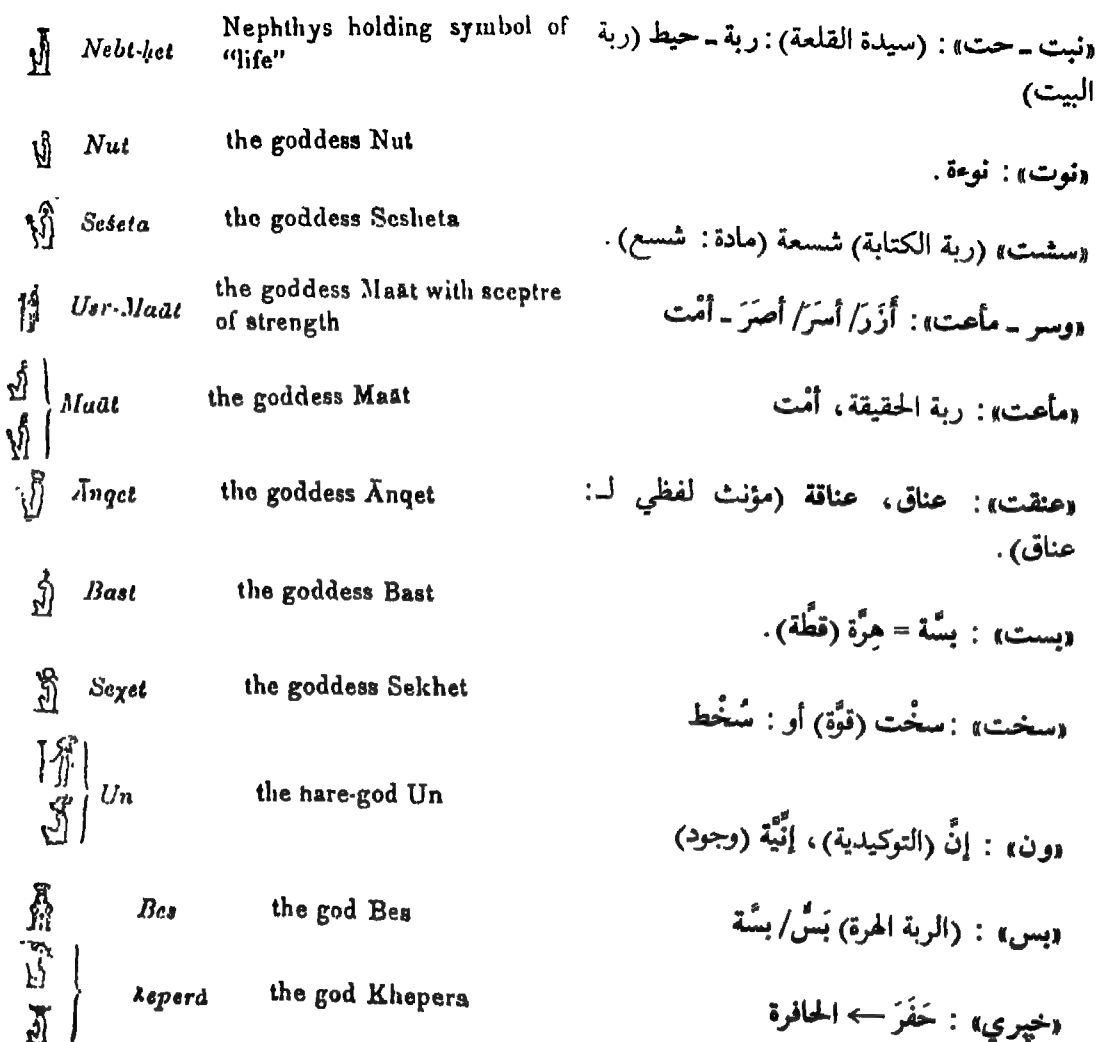 Nebt-ḥet Nephthys holding symbol of “life” «نبت ـ حت» : (سيدة القلعة) : ربة ـ حيط (ربة البيت)
Nut the goddess Nut «نوت» : نوءة .
Sešeta the goddess Sesheta «سشت» (ربة الكتابة) شسعة (مادة : شسع) .
Usr-Maāt the goddess Maāt with sceptre of strength «وسر ـ مأعت» : أَزَرَ/ أسَرَ/ أصَرَ ـ أمْت
Maāt the goddess Maāt «مأعت» : ربة الحقيقة ، أمْت
Ānqet the goddess Ānqet «عنقت» : عناق ، عناقة (مؤنث لفظي لـ : عناق) .
Bast the goddess Bast «بست» : بسَّة = هِرَّة (قطَّة) .
Seχet the goddess Sekhet «سخت» : سخْت (قوَّة) أو : سُخْط
Un the hare-god Un «ون» : إنَّ (التوكيدية) ، إنِّيَّة (وجود)
Bes the god Bes «بس» : (الربة الهرة) بَسٌّ/ بسَّة
the god Khepera «خپري» : حَفَرَ ← الحافرة